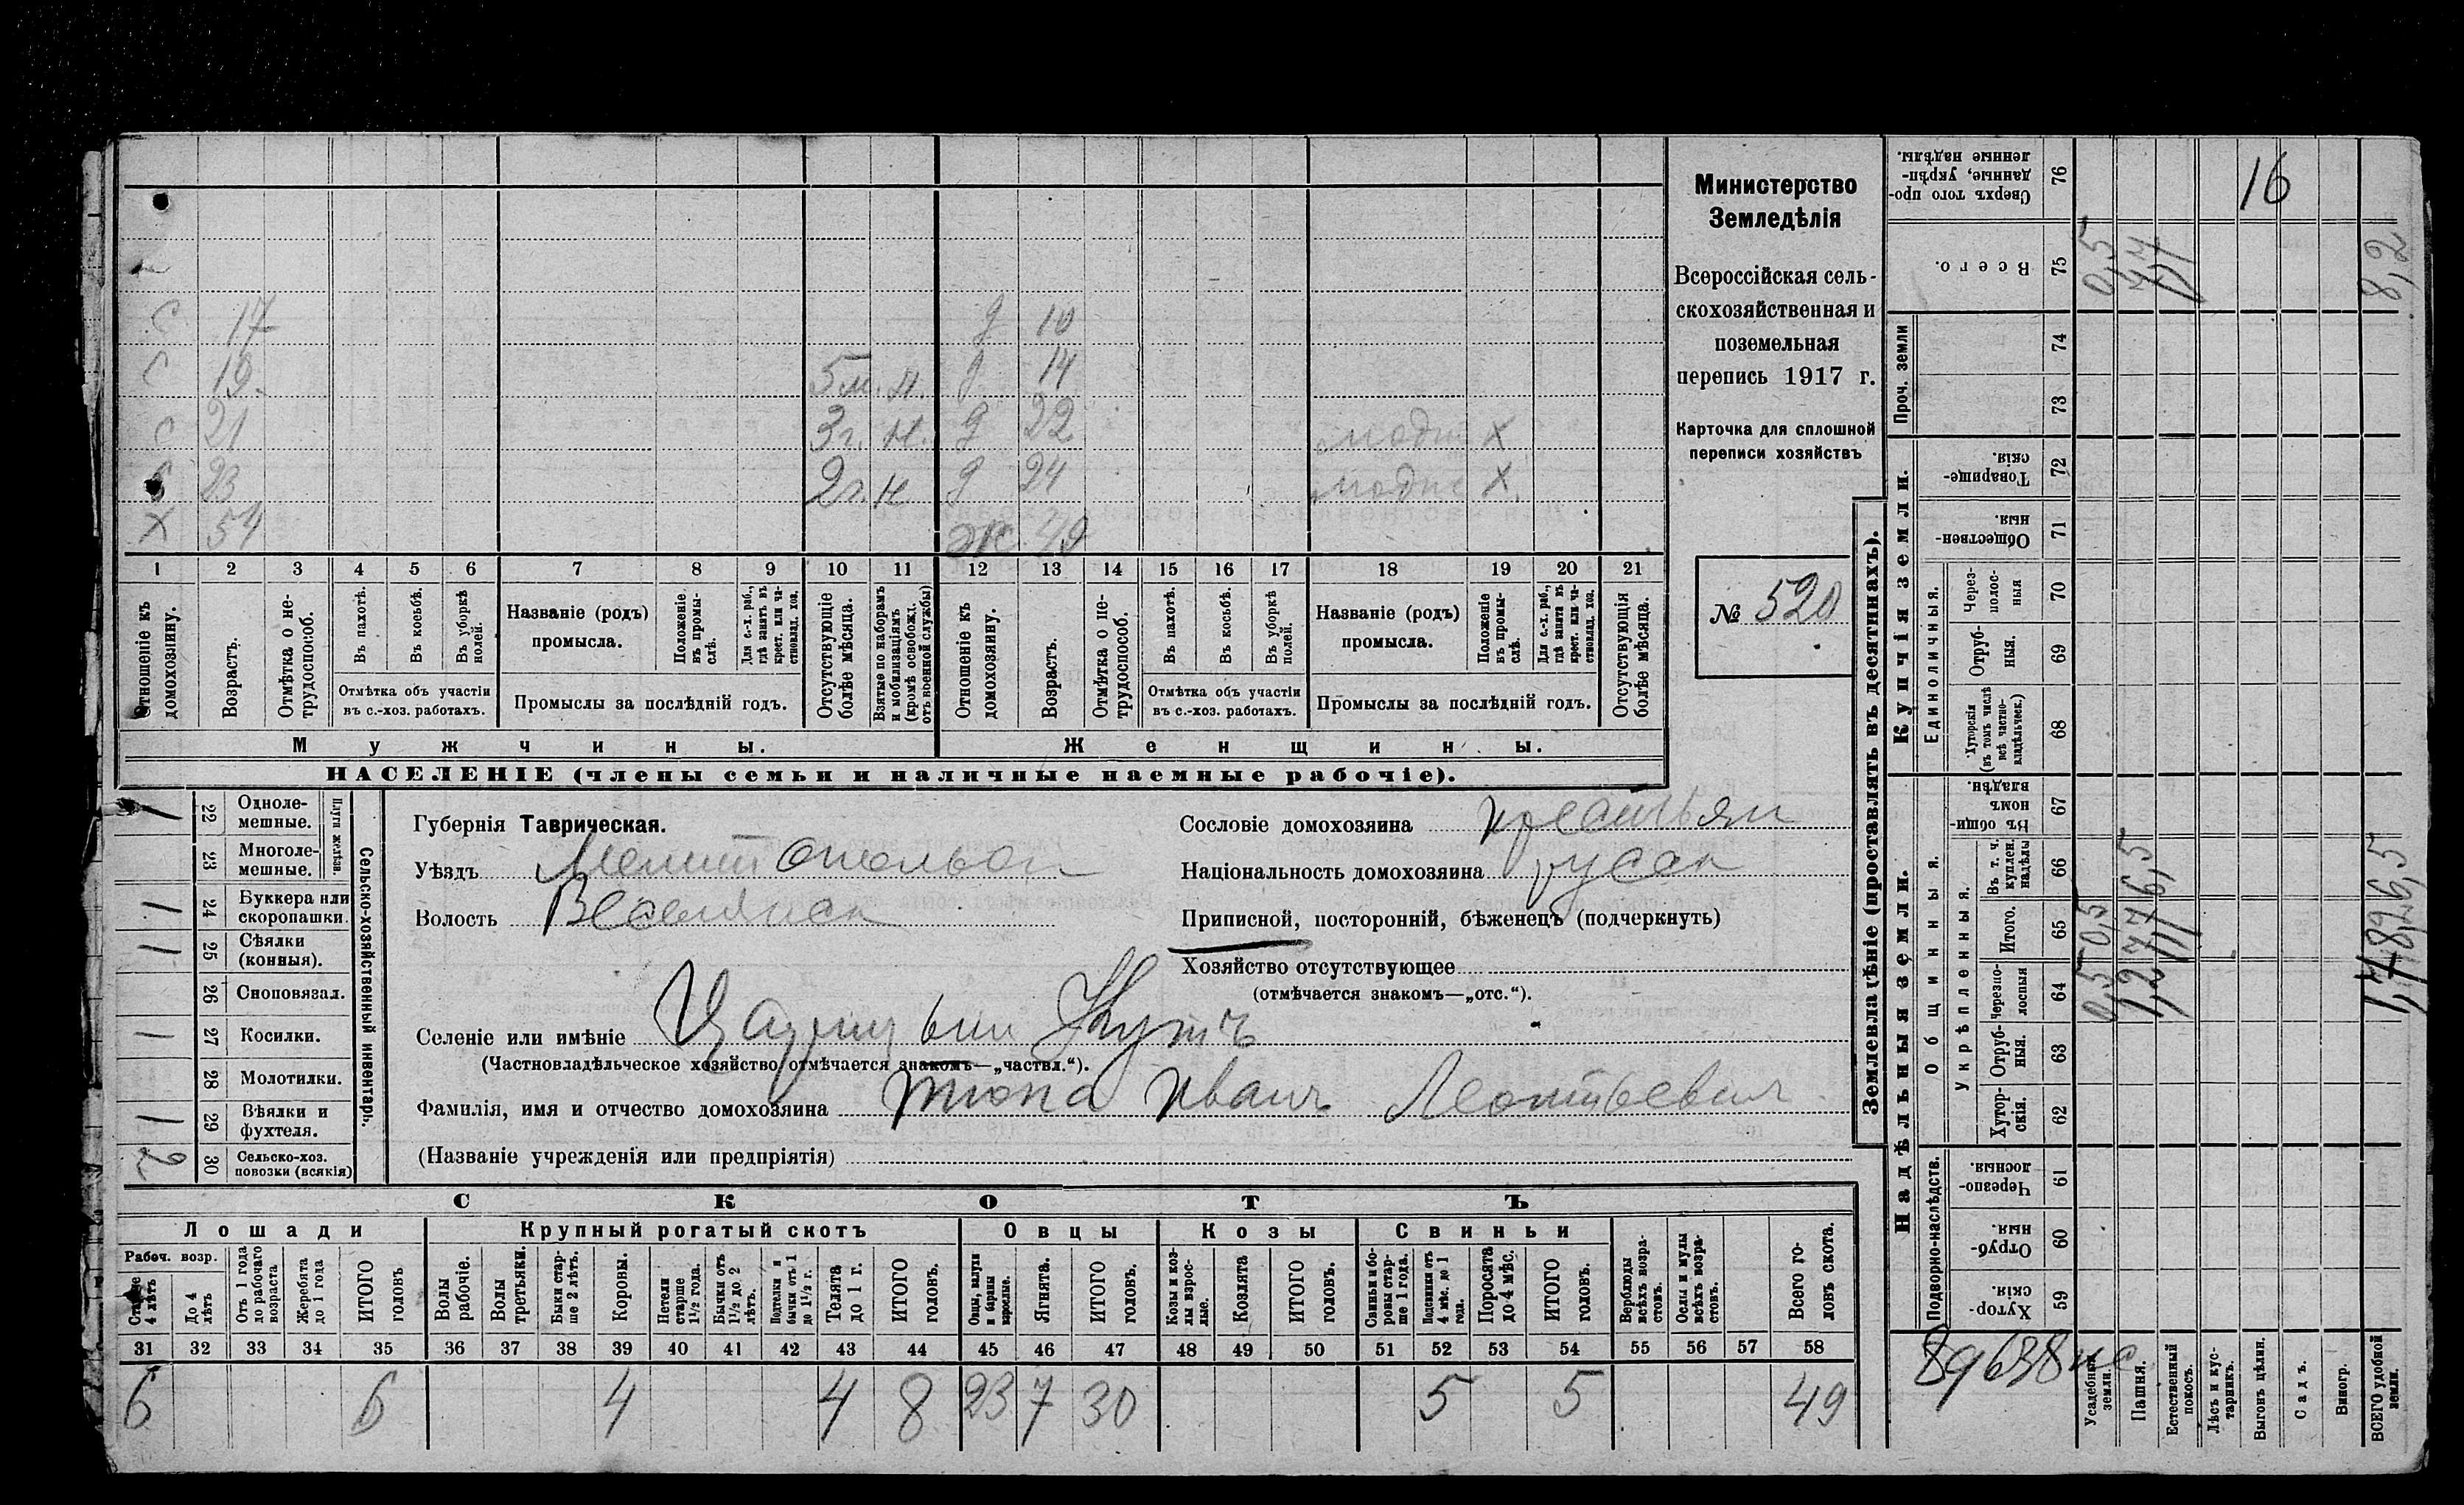 Министерство
Земледѣлія
Всероссійская сель-
скохозяйственная и
поземельная
перепись 1917 г.
Карточка для сплошной
переписи хозяйствъ
№ 520
С 17 д 10
С 19. 5 м. Н. д 14
С 21 3 г. Н. д 22 X
С 23 2 г. Н д 24 X.
Х 54 Ж. 49
1 2 3 4 5 6 7 8 9 10 11 12 13 14 15 16 17 18 19 20 21
Отношеніе къ домохозяину.
Возрастъ.
Отмѣтка о не-трудоспособ.
Въ пахотѣ.
Въ косьбѣ.
Въ уборкѣ полей.
Отмѣтка объ участіи въ с.-хоз. работахъ.
Названіе (родъ) промысла.
Положеніе въ промы-слѣ.
Для с.-х. раб., гдѣ занятъ въ крест. или ча-стновлад. хоз.
Промыслы за послѣдній годъ.
Отсутствующіе болѣе мѣсяца.
Взятые по наборамъ и мобилизаціямъ (кромѣ освобожд. отъ военной службы)
Отношеніе къ домохозяину.
Возрастъ.
Отмѣтка о не-трудоспособ.
Въ пахотѣ.
Въ косьбѣ.
Въ уборкѣ полей.
Отмѣтка объ участіи въ с.-хоз. работахъ.
Названіе (родъ) промысла.
Положеніе въ промы-слѣ.
Для с.-х. раб., гдѣ занята въ крест. или ча-стновлад. хоз.
Промыслы за послѣдній годъ.
Отсутствующія болѣе мѣсяца.
Мужчины. Женщины.
НАСЕЛЕНІЕ (члены семьи и наличные наемные рабочіе).
Сельско-хозяйственный инвентарь.
Плуги желѣзн.
1 22 Одноле-мешные.
23 Многоле-мешные.
1 24 Буккера или скоропашки.
1 25 Сѣялки (конныя).
26 Сноповязал.
1 27 Косилки.
28 Молотилки.
1 29 Вѣялки и фухтеля.
2 30 Сельско-хоз. повозки (всякія)
Губернія Таврическая.
Уѣздъ Мелитопольск
Волость Веселянск
Селеніе или имѣніе Царицын Кутъ
(Частновладѣльческое хозяйство отмѣчается знакомъ—„частвл.“).
Фамилія, имя и отчество домохозяина Тюпа Иванъ Леонтьевич
(Названіе учрежденія или предпріятія)
Сословіе домохозяина крестьян
Національность домохозяина русск
Приписной, посторонній, бѣженецъ (подчеркнуть)
Хозяйство отсутствующее
(отмѣчается знакомъ—„отс.“).
СКОТЪ
Лошади Крупный рогатый скотъ Овцы Козы Свиньи
Рабоч. возр.
Старше 4 лѣтъ
До 4 лѣтъ
Отъ 1 года до рабочаго возраста
Жеребята до 1 года
ИТОГО головъ
Волы рабочіе.
Волы третьяки.
Быки стар-ше 2 лѣтъ.
Коровы.
Нетели старше 1½ года.
Бычки отъ 1½ до 2 лѣтъ.
Подтелки и бычки отъ 1 до 1½ г.
Телята до 1 г.
ИТОГО головъ.
Овцы, валухи и бараны взрослые.
Ягнята.
ИТОГО головъ.
Козы и коз-лы взрос-лые.
Козлята
ИТОГО головъ.
Свиньи и бо-ровы стар-ше 1 года.
Подсвинки отъ 4 мѣс. до 1 года.
Поросята до 4 мѣс.
ИТОГО головъ.
Верблюды всѣхъ возра-стовъ.
Ослы и мулы всѣхъ возра-стовъ.
Всего го-ловъ скота.
31 32 33 34 35 36 37 38 39 40 41 42 43 44 45 46 47 48 49 50 51 52 53 54 55 56 57 58
6 6 4 4 8 23 7 30 5 5 49
Землевладѣніе (проставлять въ десятинахъ).
Надѣльныя земли. Купчія земли. Проч. земли
Подворно-наслѣдств. Общинныя. Укрѣпленныя. Единоличныя.
59 Хутор-скія.
60 Отруб-ныя.
61 Черезпо-лосныя.
62 Хутор-скія.
63 Отруб-ныя.
64 Черезпо-лосныя
65 Итого.
66 Въ т. ч. куплен. надѣлы
67 Въ общи-номъ владѣн.
68 Хуторскія (въ томъ числѣ всѣ частно-владѣльческ.)
69 Отруб-ныя.
70 Через-полос-ныя
71 Обществен-ныя.
72 Товарище-скія.
73
74
75 Всего.
76 Сверхъ того про-данные, укрѣп-ленные надѣлы.
Усадебныя земли. 0,5 0,5 0,5
Пашня.
Естественный покосъ.
Лѣсъ и кус-тарникъ.
Выгонъ цѣлин. 16
Садъ.
Виногр.
ВСЕГО удобной земли. 8,2